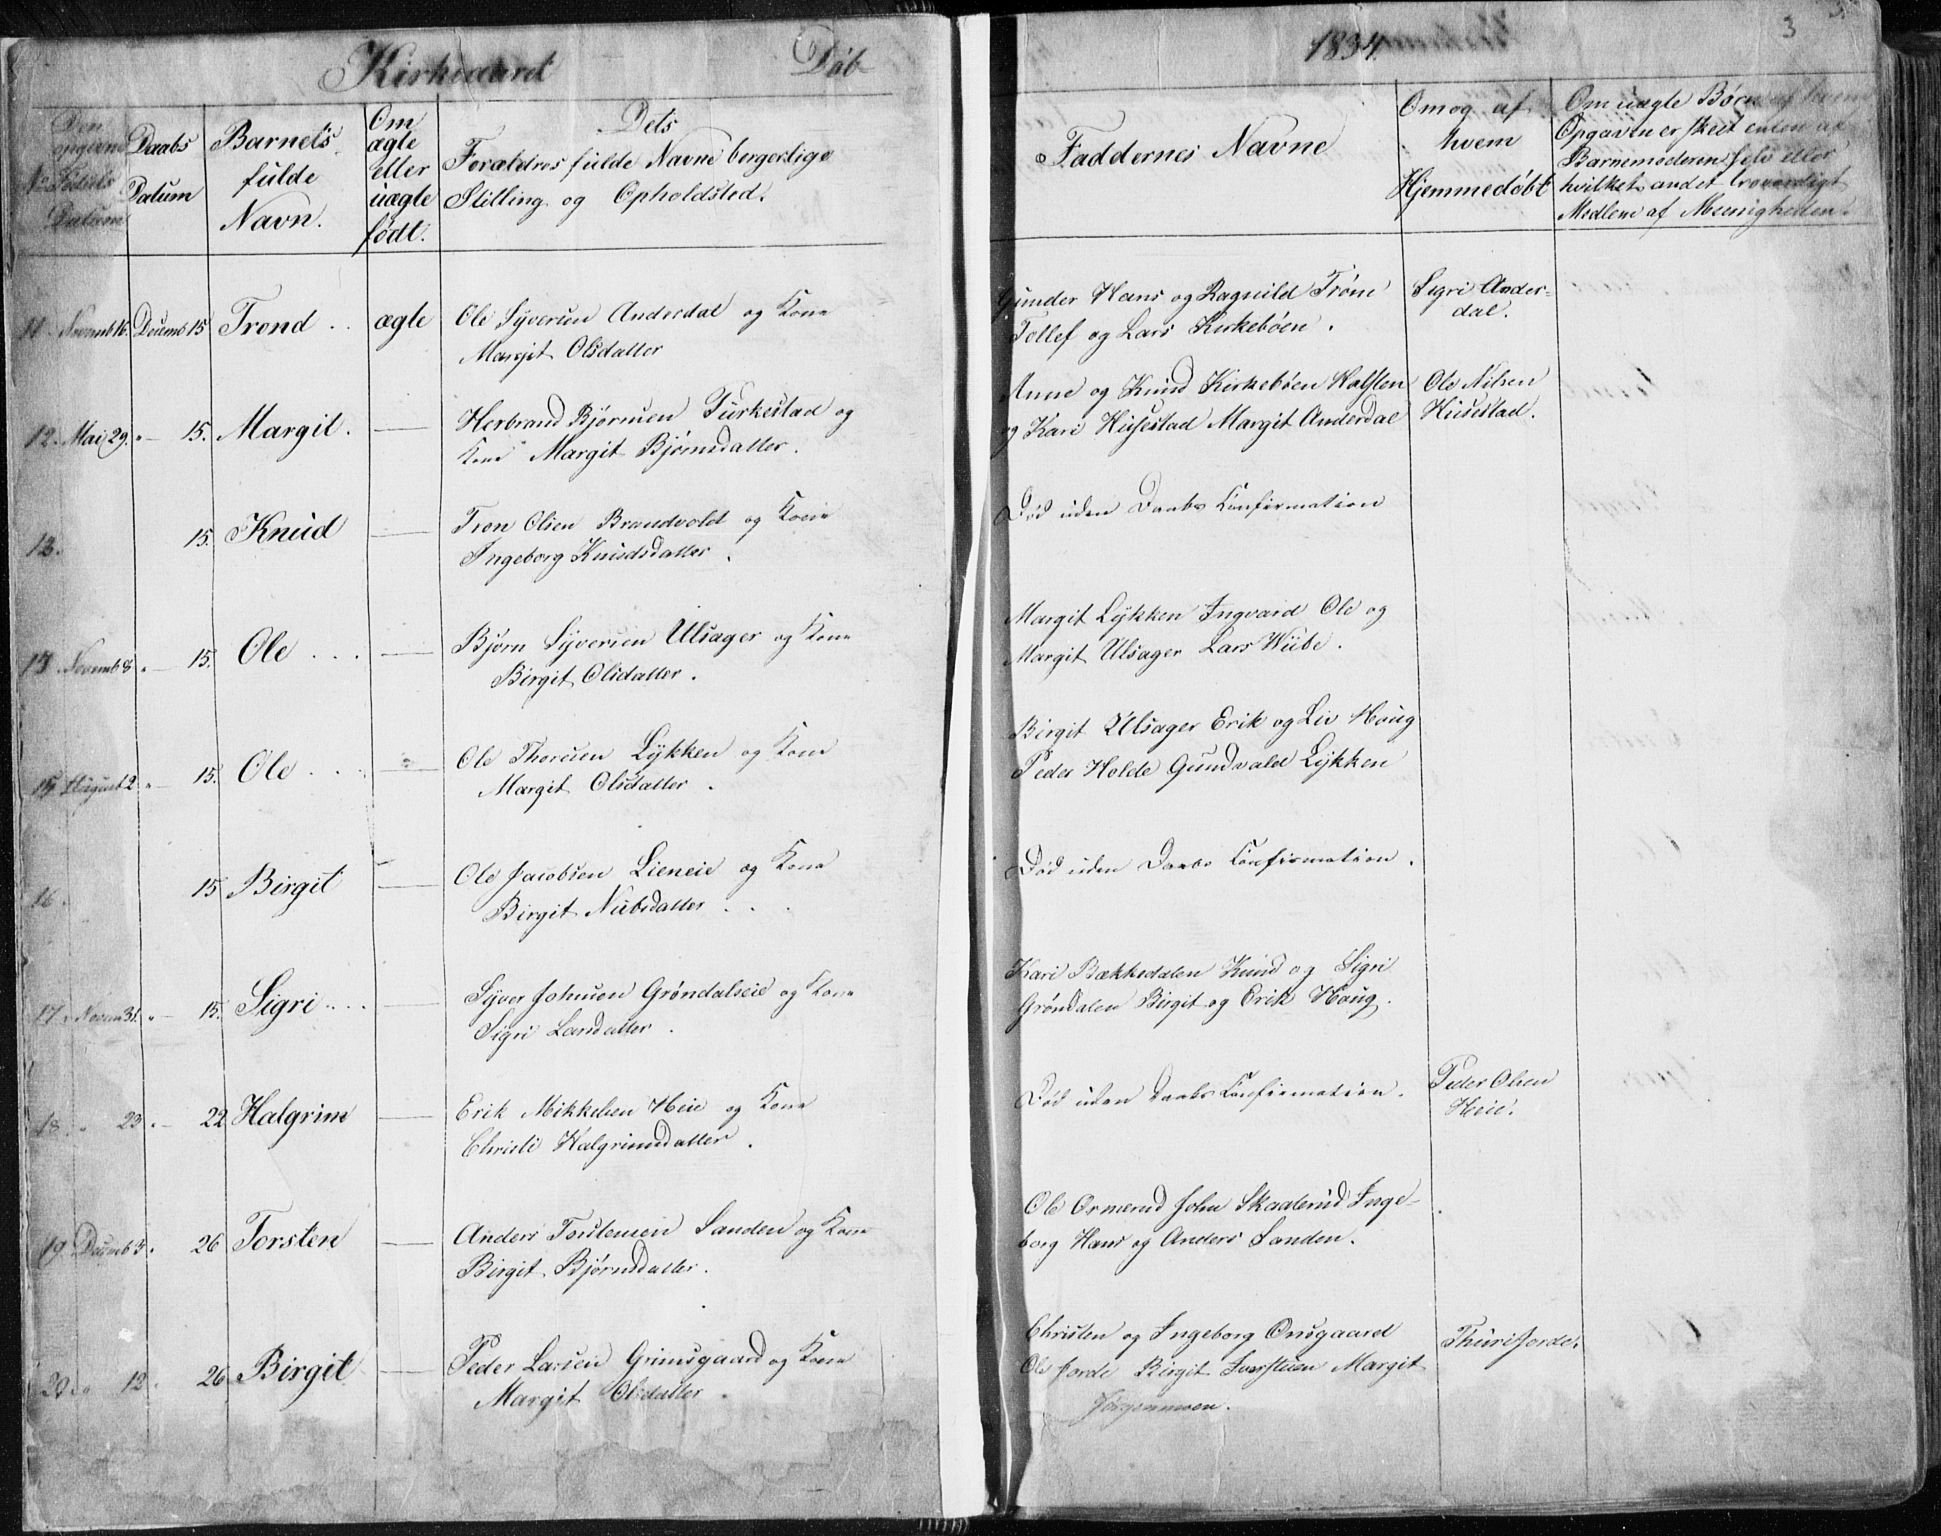 Døb
1834.
3
Daabs
Datum
Barnets
fulde
Navn.
Om
ægte
eller
uægte
født.
Dets
Forældres fulde Navne borgerlige
Stilling og Opholdsted.
Faddernes Navne
Om og af
hvem
Hjemmedøbt
Om uægte Børn af hvem
Opgaven er skeet enten af
Barnemoderen selv eller
hvilket andet troværdigt
Medlem af Menigheden.
11 Novemb 16. Decemb 15 Trond . . ægte Ole Syversen Anderdal og Kone
Margit Olsdatter
Gunder Hans og Ragnild Trøne
Tollef og Lars Kirkebøen.
Sigri Ander-
dal.
12. Mai 29. " — 15. Margit. — Herbrand Bjørnsen Turkestad og
Kone Margit Bjørnsdatter.
Anne og Knud Kirkebøen Halsten
og Kari Husestad Margit Anderdal
Ole Nilsen
Husestad.
13. 15. Knud — Tron Olsen Brandvold og Kone
Ingeborg Knudsdatter.
Død uden Daabs Confirmation
Novemb 8. " — 15. Ole . . . — Bjørn Syversen Ulsager og Kone
Birgit Olsdatter.
Margit Lykken Ingvard Ole og
Margit Ulsager Lars Wiibe.
15 August 2. " 15. Ole . . . — Ole Thoresen Lykken og Kone
Margit Olsdatter.
Birgit Ulsager Erik og Liv Houg
Peder Holde Gundvald Lykken
16. 15 Birgit — Ole Jacobsen Lieneie og Kone
Birgit Nubsdatter . . .
Død uden Daabs Confirmation.
17. Novem 31. " — 15. Sigri . . . — Syver Johnson Grøndalseie og Kone
Sigri Larsdatter.
Kari Bækkedalen Knud og Sigri
Grøndalen Birgit og Erik Houg.
18. " 23. — 22 Halgrim — Erik Mikkelsen Heie og Kone
Christi Halgrimsdatter.
Død uden Daabs Confirmation.
Peder Olsen
Heie.
19. Decemb 3. 26 Torsten — Anders Torstensen Sanden og Kone
Birgit Bjørnsdatter.
Ole Ormerud John Skaderud Inge-
borg Hans og Anders Sanden.
20. " 12. 26 Birgit — Peder Larsen Grimsgaard og Kone
Margit Olsdatter.
Christen og Ingeborg Onsgaard
Ole Jorde Birgit Margit
Jørgenmoen.
Thuri Jorde.